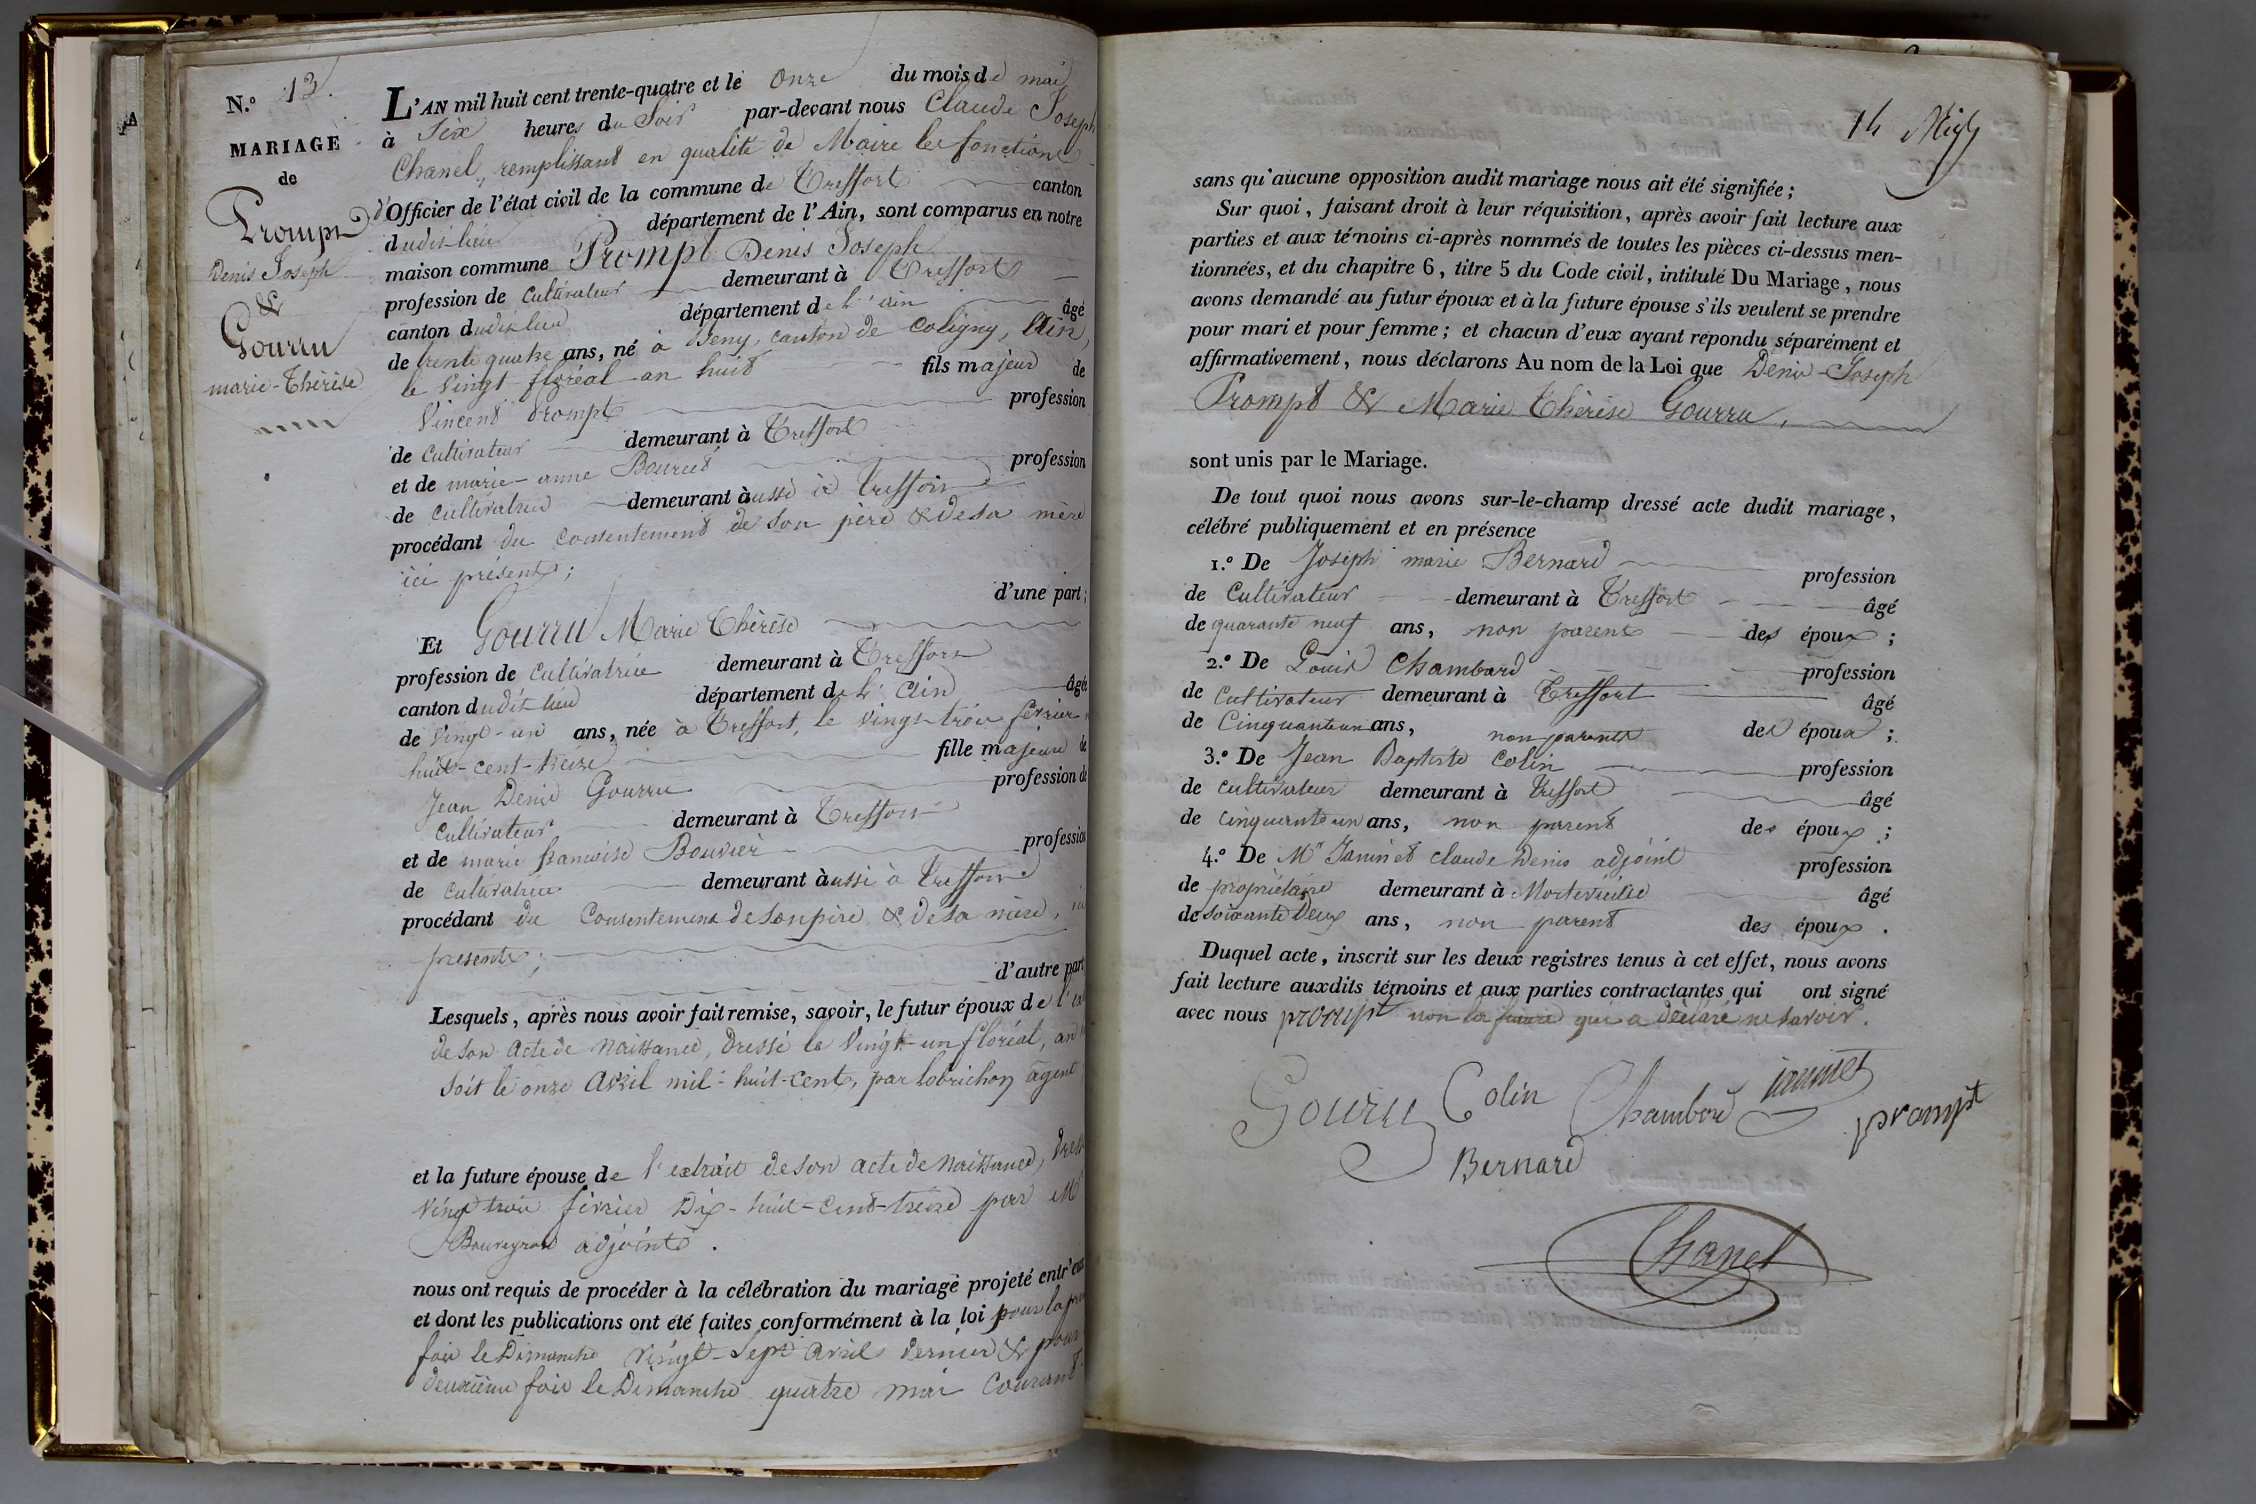 N.º 13.
MARIAGE
de
Prompt
Denis Joseph
&
Gourru
marie-Thérèse
L'AN mil huit cent trente-quatre et le onze du mois de mai
à Six heures du Soir par-devant nous Claude Joseph
Chanel, remplissant en qualité de Maire les fonctions
d'Officier de l'état civil de la commune de Treffort canton
dudit lieu département de l'Ain, sont comparus en notre
maison commune Prompt Denis Joseph
profession de Cultivateur demeurant à Treffort
canton dudit lieu département de l'ain âgé
de trente quatre ans, né à Beny, canton de Coligny, Ain,
le Vingt floréal an huit fils majeur de
Vincent Prompt profession
de Cultivateur demeurant à Treffort
et de marie-anne Bourcet profession
de Cultivatrice demeurant aussi à Treffort
procédant du Consentement de son père & de sa mère
ici présents;
d'une part;
Et Gourru Marie Thérèse
profession de Cultivatrice demeurant à Treffort
canton dudit lieu département de l'Ain âgée
de Vingt-un ans, née à Treffort, le vingt-trois février
huit-cent-treize fille majeure de
Jean Denis Gourru profession de
Cultivateur demeurant à Treffort
et de marie françoise Bouvier profession
de Cultivatrice demeurant aussi à Treffort
procédant du Consentement de son père & de sa mère, ici
présents;
d'autre part
Lesquels, après nous avoir fait remise, savoir, le futur époux de
de son acte de Naissance, Dressé le Vingt-un floréal, an
Soit le onze Avril mil-huit-cent, par Lobrichon agent
et la future épouse de l'extrait de son acte de Naissance,
Vingt trois février Dix-huit-cent-treize par Mr
Bouveyron adjoint.
nous ont requis de procéder à la célébration du mariage projeté entr'eux
et dont les publications ont été faites conformément à la loi pour la
fois le Dimanche Vingt-Sept Avril dernier & pour
deuxième fois le Dimanche quatre mai Courant
14
sans qu'aucune opposition audit mariage nous ait été signifiée;
Sur quoi, faisant droit à leur réquisition, après avoir fait lecture aux
parties et aux témoins ci-après nommés de toutes les pièces ci-dessus men-
tionnées, et du chapitre 6, titre 5 du Code civil, intitulé Du Mariage, nous
avons demandé au futur époux et à la future épouse s'ils veulent se prendre
pour mari et pour femme; et chacun d'eux ayant répondu séparément et
affirmativement, nous déclarons Au nom de la Loi que Denis-Joseph
Prompt & Marie Thérèse Gourru,
sont unis par le Mariage.
De tout quoi nous avons sur-le-champ dressé acte dudit mariage,
célébré publiquement et en présence
1.º De Joseph marie Bernard profession
de Cultivateur demeurant à Treffort âgé
de quarante neuf ans, non parent des époux;
2.º De Louis Chambard profession
de Cultivateur demeurant à Treffort âgé
de Cinquante un ans, non parent des époux;
3.º De Jean Baptiste Colin profession
de cultivateur demeurant à Treffort âgé
de cinquante un ans, non parent des époux;
4.º De Mr Janinet claude Denis adjoint profession
de propriétaire demeurant à Morteveille âgé
de soixante Deux ans, non parent des époux.
Duquel acte, inscrit sur les deux registres tenus à cet effet, nous avons
fait lecture auxdits témoins et aux parties contractantes qui ont signé
avec nous prompt non la future qui a déclaré ne savoir.
Gouru Colin Chambard janinet
prompt
Bernard
Chanel